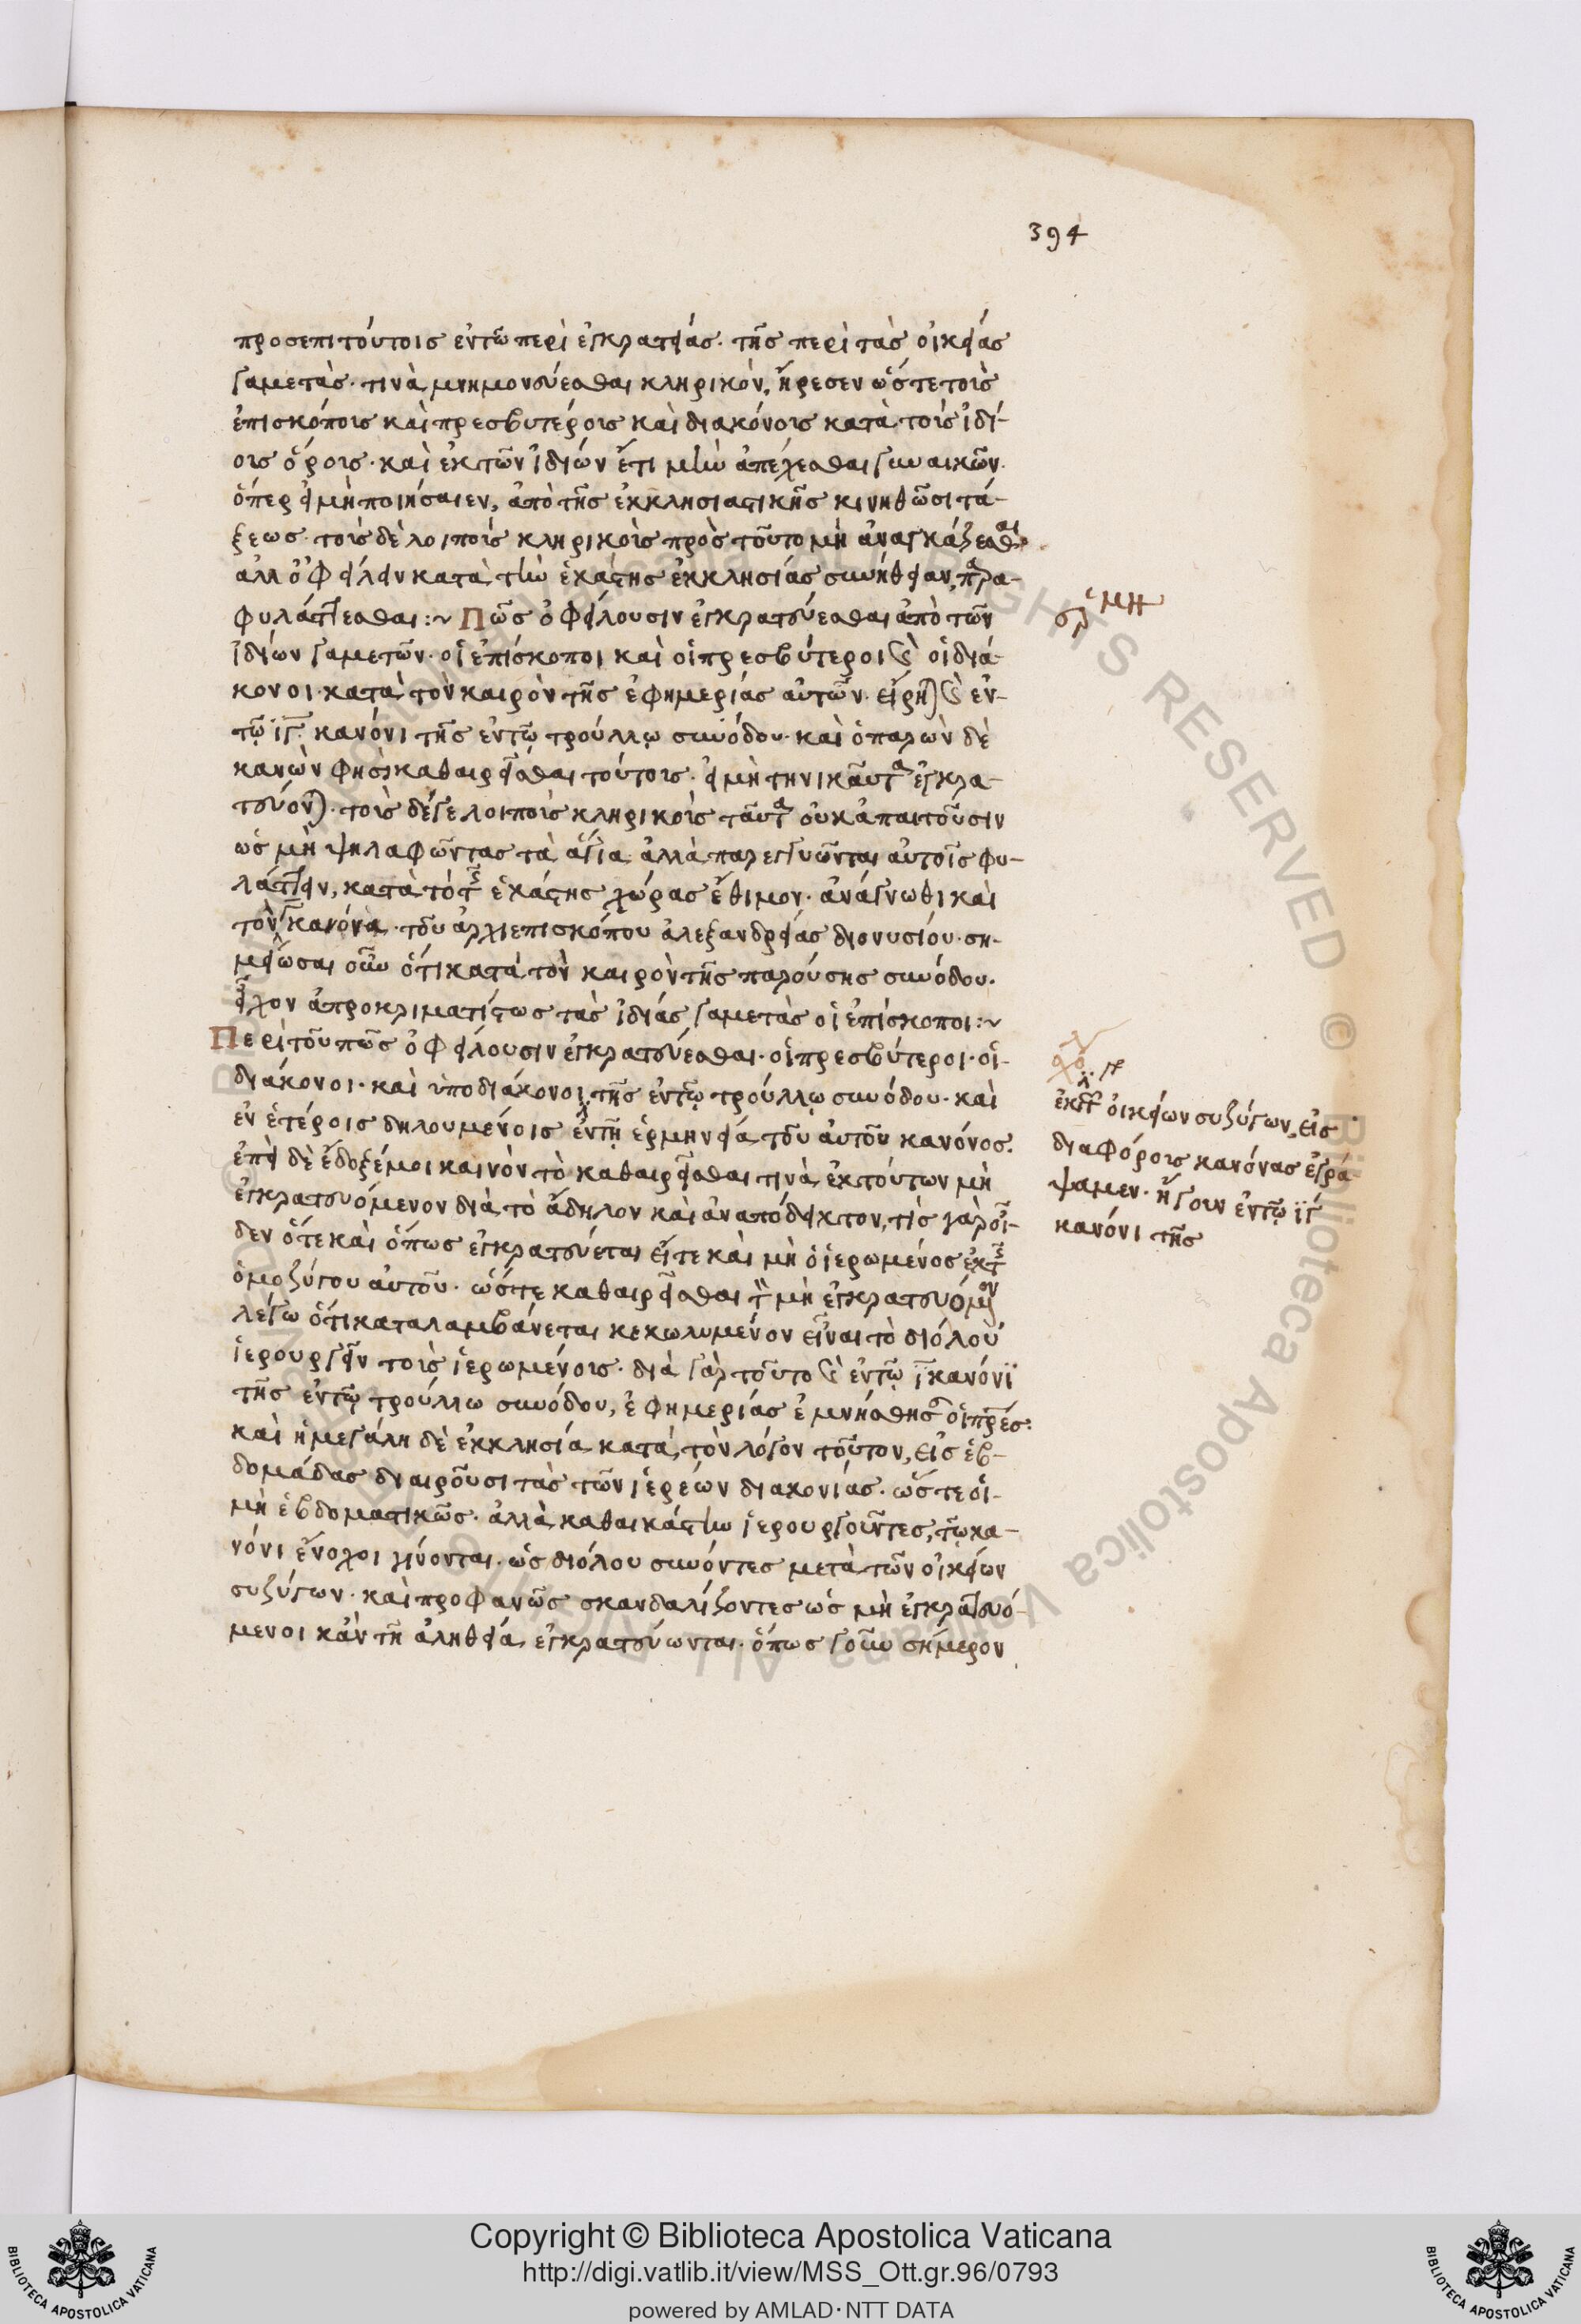 394
προσεπιτούτοις ἐν τῶ περὶ ἐγκρατείας. τῆς περὶ τὰς οἰκείας
γαμετὰς. τινὰ μνημονεύεσθαι κληρικὸν, ἤρεσεν ὥστε τοῖς
ἐπισκόποις καὶ πρεσβυτέροις καὶ διακόνοις κατὰ τοῖς ἰδί-
οις ὅροις. καὶ ἐκ τῶν ἰδίων ἔτι μὴν ἀπέχεσθαι γυναικῶν.
ὅπερ εἰ μὴ ποιήσαιεν, ἀπὸ τῆς ἐκκλησιαστικῆς κινηθῶσι τά-
ξεως. τοῖς δὲ λοιποῖς κληρικοῖς πρὸς τοῦτο μὴ ἀναγκάζεσθαι.
ἀλλ ὀφείλειν κατὰ τὴν ἑκάστης ἐκκλησίας συνήθειαν, παρα-
φυλάττεσθαι :~ Πῶς ὀφείλουσιν ἐγκρατεύεσθαι ἀπὸ τῶν
ἰδίων γαμετῶν. οἱ ἐπίσκοποι καὶ οἱ πρεσβύτεροι καὶ οἱ διά-
κονοι. κατὰ τὸν καιρὸν τῆς ἐφημερίας αὐτῶν. εἴρηται καὶ ἐν
τῷ ιγ κανόνι τῆς ἐν τῷ τρούλλῳ συνόδου. καὶ ὁ παρὼν δὲ
κανὼν φησὶ καθαιρεῖσθαι τούτοις. εἰ μὴ τηνικαῦτα ἐγκρα-
τεύονται. τοῖς δέ γε λοιποῖς κληρικοῖς ταῦτα οὐκ ἀπαιτοῦσιν
ὡς μὴ ψηλαφῶντας τὰ ἅγια. ἀλλὰ παρεγγυῶνται αὐτοῖς φυ-
λάττειν, κατὰ τὸ τῆς ἑκάστης χώρας ἔθιμον. ἀνάγνωθι καὶ
τὸν γ κανόνα. τοῦ ἀρχιεπισκόπου ἀλεξανδρείας διονυσίου. ση-
μείωσαι οὖν ὅτι κατὰ τὸν καιρὸν τῆς παρούσης συνόδου.
εἶχον ἀπροκριματίστως τὰς ἰδίας γαμετὰς οἱ ἐπίσκοποι :~
Περὶ τοῦ πῶς ὀφείλουσιν ἐγκρατεύεσθαι. οἱ πρεσβύτεροι. οἱ
διάκονοι. καὶ ὑποδιάκονοι τῆς ἐν τῷ τρούλλῳ συνόδου. καὶ
ἐν ἑτέροις δηλουμένοις ἐν τῇ ἑρμηνεία τοῦ αὐτοῦ κανόνος.
ἐπεὶ δὲ ἔδοξέ μοι καινὸν τὸ καθαιρεῖσθαι τινὰ ἐκ τούτων μὴ
ἐγκρατευόμενον διὰ τὸ ἄδηλον καὶ ἀναπόδεικτον, τίς γὰρ οἶ-
δεν ὅτε καὶ ὅπως ἐγκρατεύεται εἴτε καὶ μὴ ὁ ἱερωμένος ἐκ τῆς
ὁμοζύγου αὐτοῦ. ὥστε καθαιρεῖσθαι τὸν μὴ ἐγκρατευόμενον
λέγω ὅτι καταλαμβάνεται κεκωλυμένον εἶναι τὸ διόλου
ἱερουργεῖν τοῖς ἱερωμένοις. διὰ γὰρ τοῦτο καὶ ἐν τῷ ιγ κανόνι
τῆς ἐν τῷ τρούλλω συνόδου, ἐφημερίας ἐμνήσθησαν οἱ πρες.
καὶ ἡ μεγάλη δὲ ἐκκλησία κατὰ τὸν λόγον τοῦτον, εἰς ἑβ-
δομάδας διαιροῦσι τὰς τῶν ἱερέων διακονίας. ὥστε οἱ
μὴ ἑβδοματικῶς. ἀλλὰ καθ' ἑκάστην ἱερουργοῦντες, τῷ κα-
νόνι ἔνοχοι γίνονται. ὡς διόλου συνόντες μετὰ τῶν οἰκείων
συζύγων. καὶ προφανῶς σκανδαλίζοντες ὡς μὴ ἐγκρατευό-
μενοι κἂν τῇ ἀληθεία ἐγκρατεύωνται. ὅπως γοῦν σήμερον
ἐκ τῶν οἰκείων συζύγων, εἰς
διαφόροις κανόνας ἐγρά-
ψαμεν. ἤγουν ἐν τῷ ιγ
κανόνι τῆς
Copyright © Biblioteca Apostolica Vaticana
http://digi.vatlib.it/view/MSS_Ott.gr.96/0793
powered by AMLAD·NTT DATA